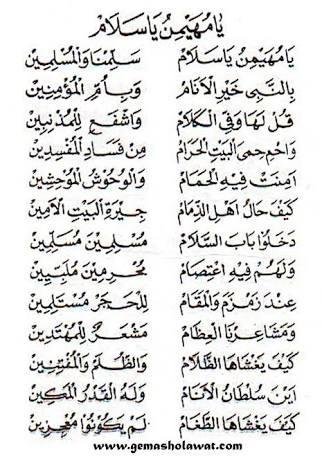 يَامُهَيْمِنُ يَاسَلَامْ
يَامُهَيْمِنُ يَاسَلَامْ سَلِّمْنَا وَالْمُسْلِمِيْنْ
بِالنَّبِى خَيْرِ الْاَنَامْ وَبِاُمِّ الْمُؤْمِنِيْنْ
قُلْ لَهَا وَفِى الْكَلَامْ وَاشْفَعِ لِلْمُذْنِبِيْنْ
وَاحْمِ حِمَى الْبَيْتِ الْحَرَامْ مِنْ فَسَادِ الْمُفْسِدِيْنْ
اٰمِنَتْ فِيْهِ الْحَمَامْ وَالْوُحُوْشُ الْمُوْحِشِيْنْ
كَيْفَ حَالُ اَهْلِ الذِّمَامْ جِيْرَةِ الْبَيْتِ الْاَمِيْنْ
دَخَلُوْا بَابَ السَّلَامْ مُسْلِمِيْنَ مُسَلِّمِيْنْ
وَلَهُمْ فِيْهِ اعْتِصَامْ مُحْرِمِيْنَ مُلَبِّيِيْنْ
عِنْدَ زَمْزَمَ وَالْمَقَامْ لِلْحَجَرْ مُسْتَلِمِيْنْ
وَمَشَاعِرْنَا الْعِظَامْ مَشْعَرٌ لِلْمُهْتَدِيْنْ
كَيْفَ يَغْشَاهَا الظَّلَامْ وَالظُّلَمْ وَالْمُفْتِنِيْنْ
اَيْنَ سُلْطَانُ الْاَنَامْ وَلَهُ الْقَدْرُ الْمَكِيْنْ
كَيْفَ يَغْشَاهَا الطَّغَامْ لَمْ يَكُوْنُوْا مُعْجِزِيْنْ
www.gemasholawat.com